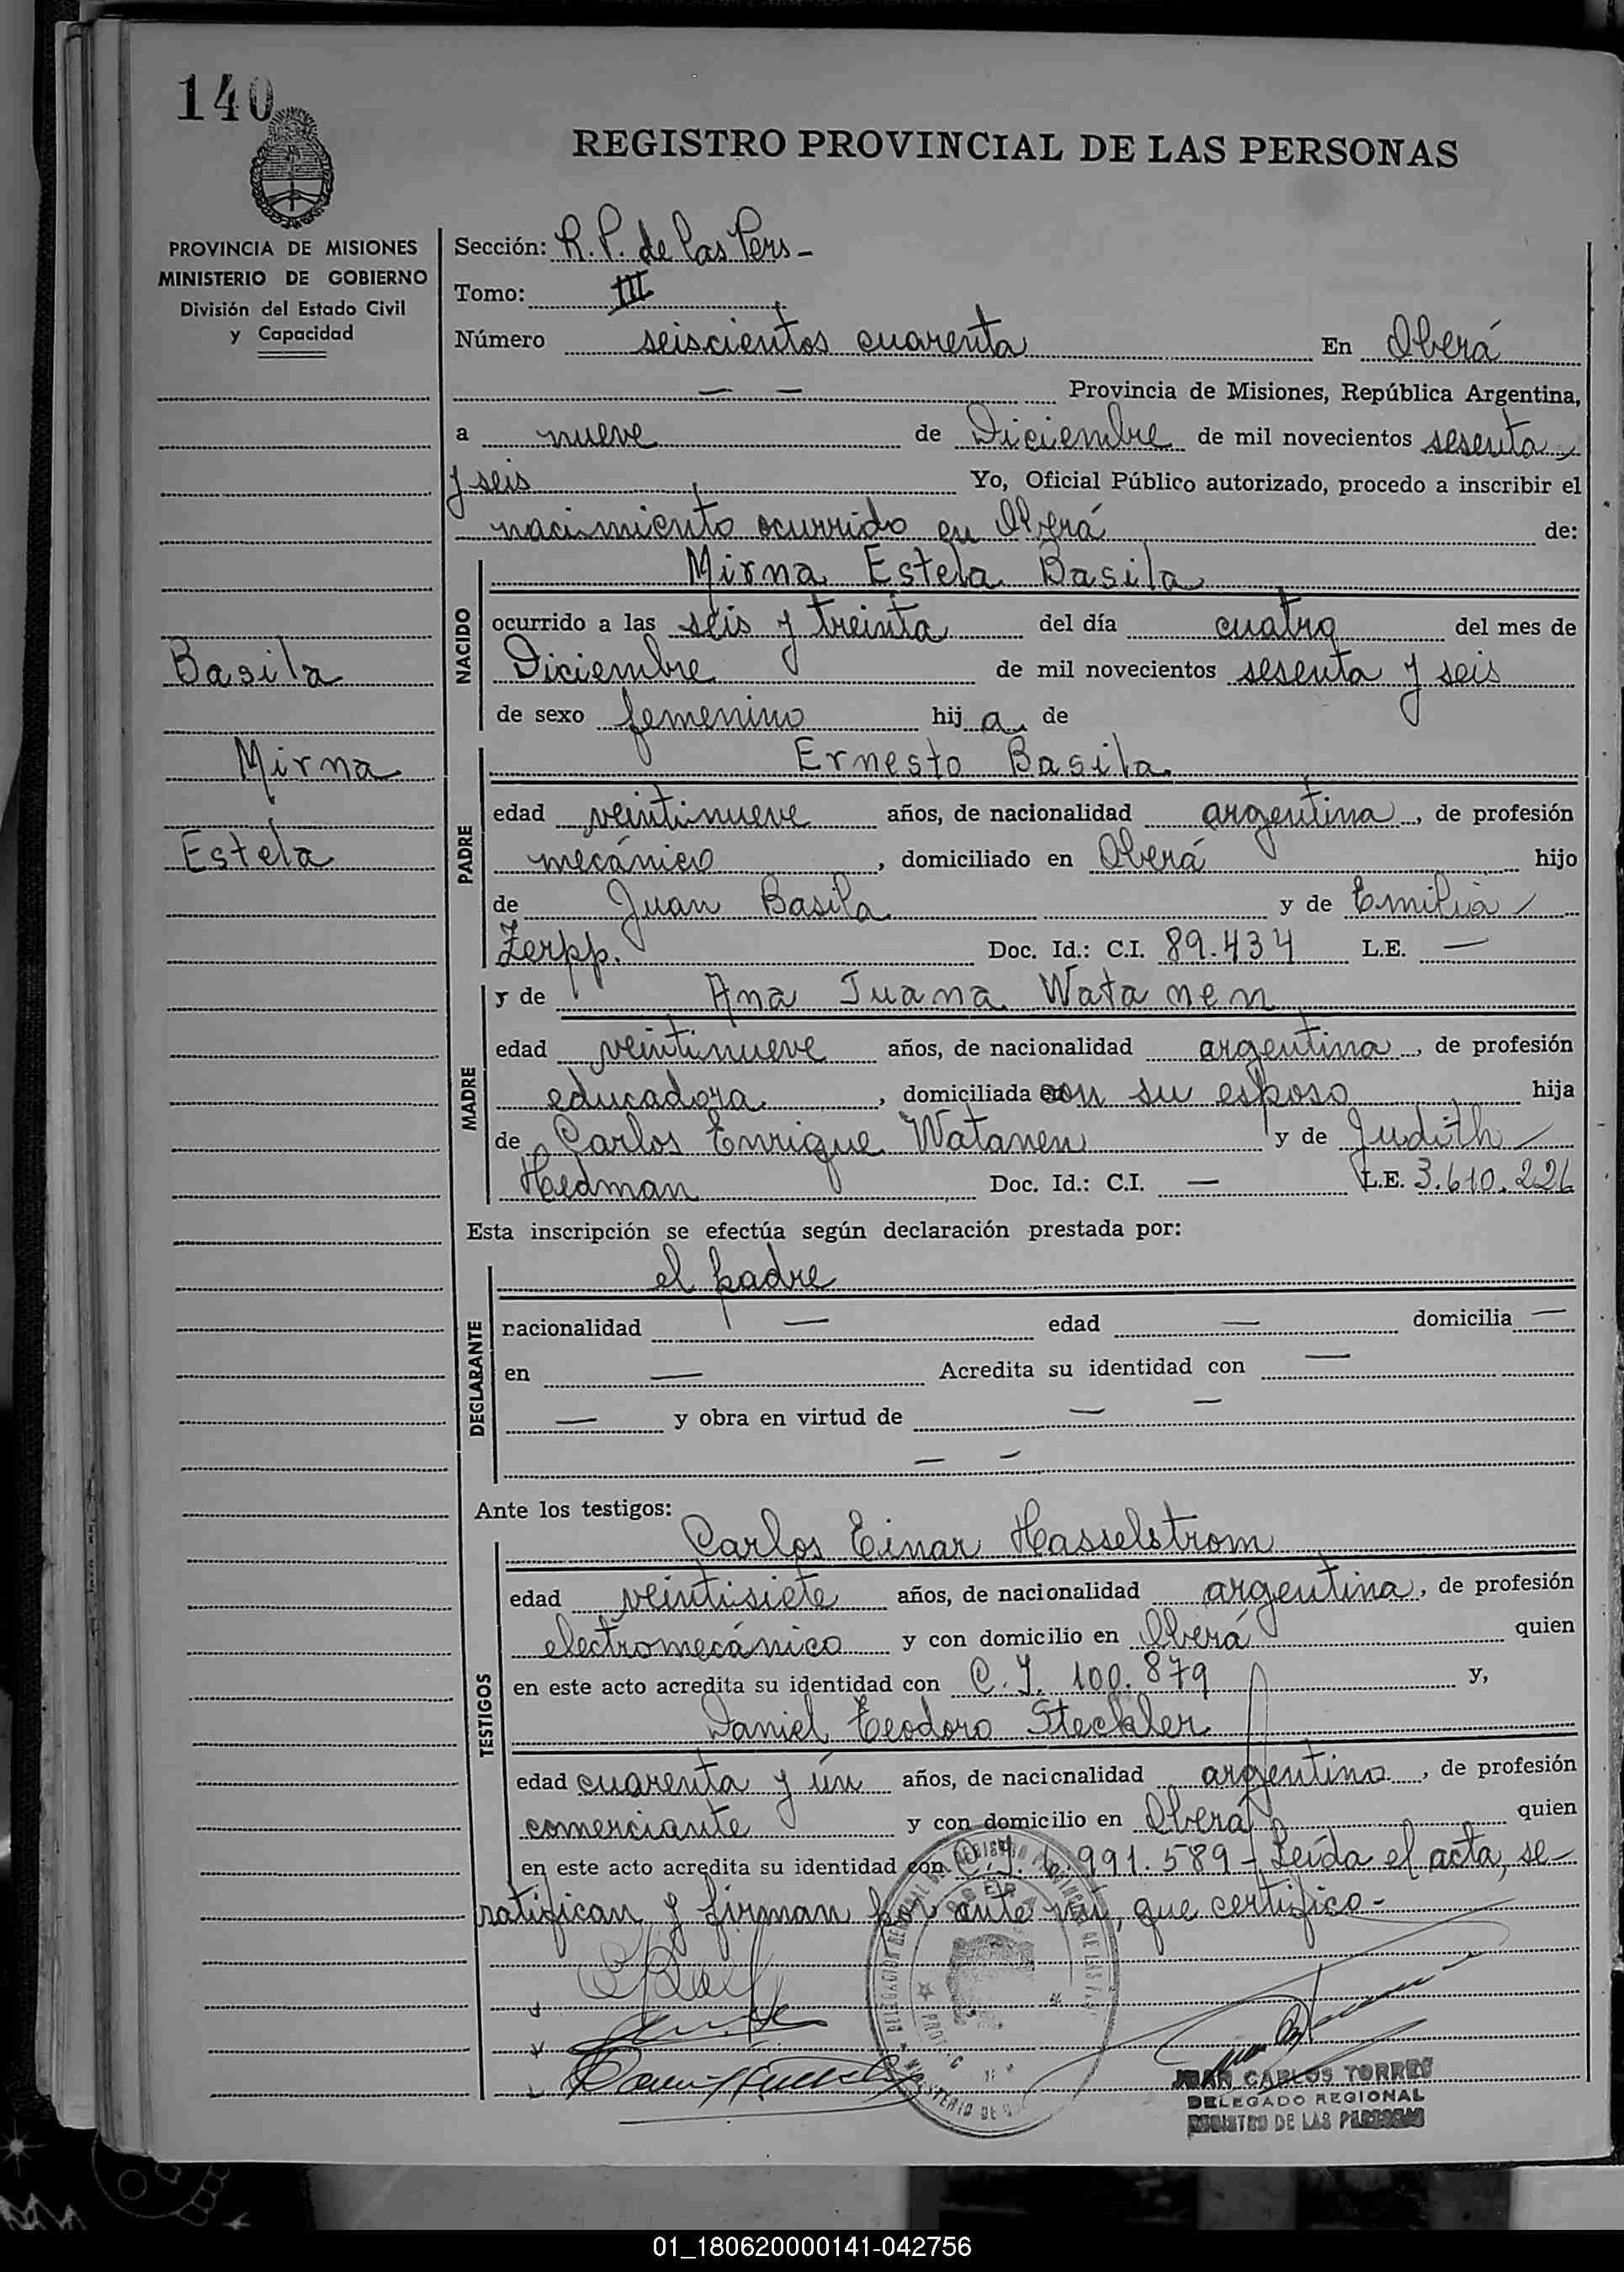 140
REGISTRO PROVINCIAL DE LAS PERSONAS
PROVINCIA DE MISIONES
MINISTERIO DE GOBIERNO
División del Estado Civil
y Capacidad
Sección: R.P. de las Pers -
Tomo: III
Número seiscientos cuarenta En Oberá
— — Provincia de Misiones, República Argentina,
a nueve de Diciembre de mil novecientos sesenta
y seis Yo, Oficial Público autorizado, procedo a inscribir el
nacimiento ocurrido en Oberá de:
NACIDO
Mirna Estela Basila
ocurrido a las seis y treinta del día cuatro del mes de
Basila
Diciembre de mil novecientos sesenta y seis
de sexo femenino hija de
Mirna
PADRE
Ernesto Basila
edad veintinueve años, de nacionalidad argentina, de profesión
Estela
mecánico, domiciliado en Oberá hijo
de Juan Basila y de Emilia
Zerpp. Doc. Id.: C.I. 89.434 L.E. —
MADRE
y de Ana Juana Watanen
edad veintinueve años, de nacionalidad argentina, de profesión
educadora, domiciliada con su esposo hija
de Carlos Enrique Watanen y de Judith
Hedman Doc. Id.: C.I. — L.E. 3.610.226
Esta inscripción se efectúa según declaración prestada por:
DECLARANTE
el padre
nacionalidad — edad — domicilia —
en — Acredita su identidad con —
— y obra en virtud de — —
— —
Ante los testigos:
TESTIGOS
Carlos Einar Hasselstrom
edad veintisiete años, de nacionalidad argentina, de profesión
electromecánico y con domicilio en Oberá quien
en este acto acredita su identidad con C.I. 100.879 y,
Daniel Teodoro Steckler
edad cuarenta y ún años, de nacionalidad argentina, de profesión
comerciante y con domicilio en Oberá quien
en este acto acredita su identidad con 991.589 - Leída el acta, se
ratifican y firman por ante mí, que certifico -
JUAN CARLOS TORRES
DELEGADO REGIONAL
REGISTRO DE LAS PERSONAS
01_180620000141-042756